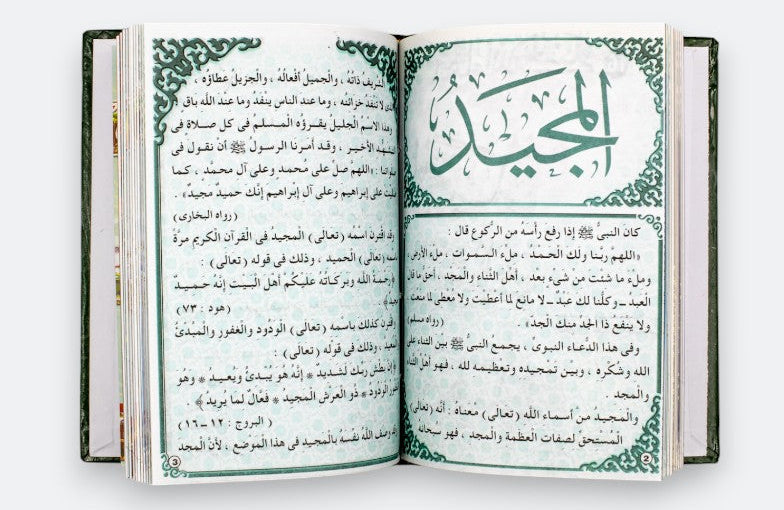 المجيد
كان النبيُّ ﷺ إذا رفع رأسَهُ من الركوع قال :
«اللهمَّ ربَّنا ولك الحمدُ ، ملءَ السموات ، ملءَ الأرض ،
وملءَ ما شئتَ من شيءٍ بعد ، أهلَ الثناء والمجد ، أحقُّ ما قال
العبدُ ــ وكلُّنا لك عبدٌ ــ لا مانعَ لما أعطيتَ ولا معطىَ لما منعتَ
ولا ينفعُ ذا الجَدِّ منك الجدُّ» .
(رواه مسلم)
وفى هذا الدُّعاء النبوىِّ ، يجمعُ النبىُّ ﷺ بين الثناء على
الله وشكْره ، وبيْن تمجيده وتعظيمه لله ، فهو أهلُ الثناء
والمجد .
والمجيدُ منْ أسماء الله (تعالى) معْناهُ : أنَّه (تعالى)
المستحقُّ لصفات العظمة والمجد ، فهو سُبحانه
2
الشريفُ ذاتُهُ ، والجميلُ أفْعالُهُ ، والجزيلُ عطاؤه ،
لا تنْفَدُ خزائنُه ، وما عند الناس ينْفَدُ وما عند الله باق .
وهذا الاسْمُ الجليلُ يقرؤه المسلمُ فى كل صلاة فى
الأخير ، وقد أمرنا الرسولُ ﷺ أن نقول فى
: «اللهم صلِّ على محمد وعلى آل محمَّد ، كما
على إبراهيم وعلى آل إبراهيم إنَّك حميدٌ مجيدٌ» .
(رواه البخارى)
وقد اقترن اسْمُه (تعالى) المجيدُ فى القرآن الكريم مرَّةً
(تعالى) الحميد ، وذلك فى قوله (تعالى) :
رحمةُ الله وبركاتُهُ عليْكُم أهْلَ البيْت إنَّه حميدٌ
(هود : ٧٣)
واقترن كذلك باسْمه (تعالى) الودُود والغفور والمُبدئُ
، وذلك فى قوله (تعالى) :
إنَّ بطْشَ ربِّك لشَديدٌ * إنَّهُ هُوَ يُبْدئُ ويُعيدُ * وهُو
الودُودُ * ذُو العرْش المجيدُ * فعَّالٌ لما يُريدُ﴾ .
(البروج : ١٢ــ١٦)
وصف اللهُ نفْسَهُ بالمجيد فى هذا الموضع ، لأنَّ المجد
3